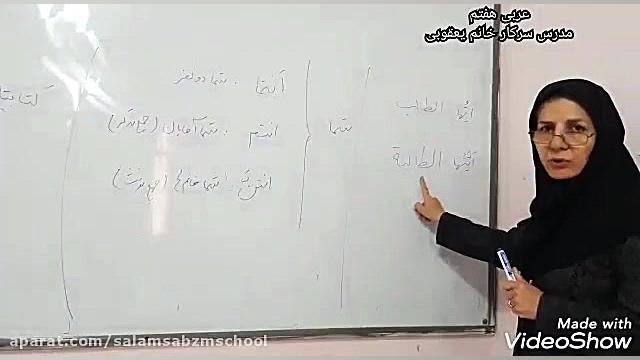 عربی هفتم
مدرس سرکار خانم یعقوبی
ایُّها الطالب
ایَّتُها الطالبة
شما
أنتما : شما دو نفر
انتم : شما آقایان (جمع مذکر)
انتنَّ : شما خانم ها (جمع مونث)
aparat.com/salamsabzmschool
Made with
VideoShow